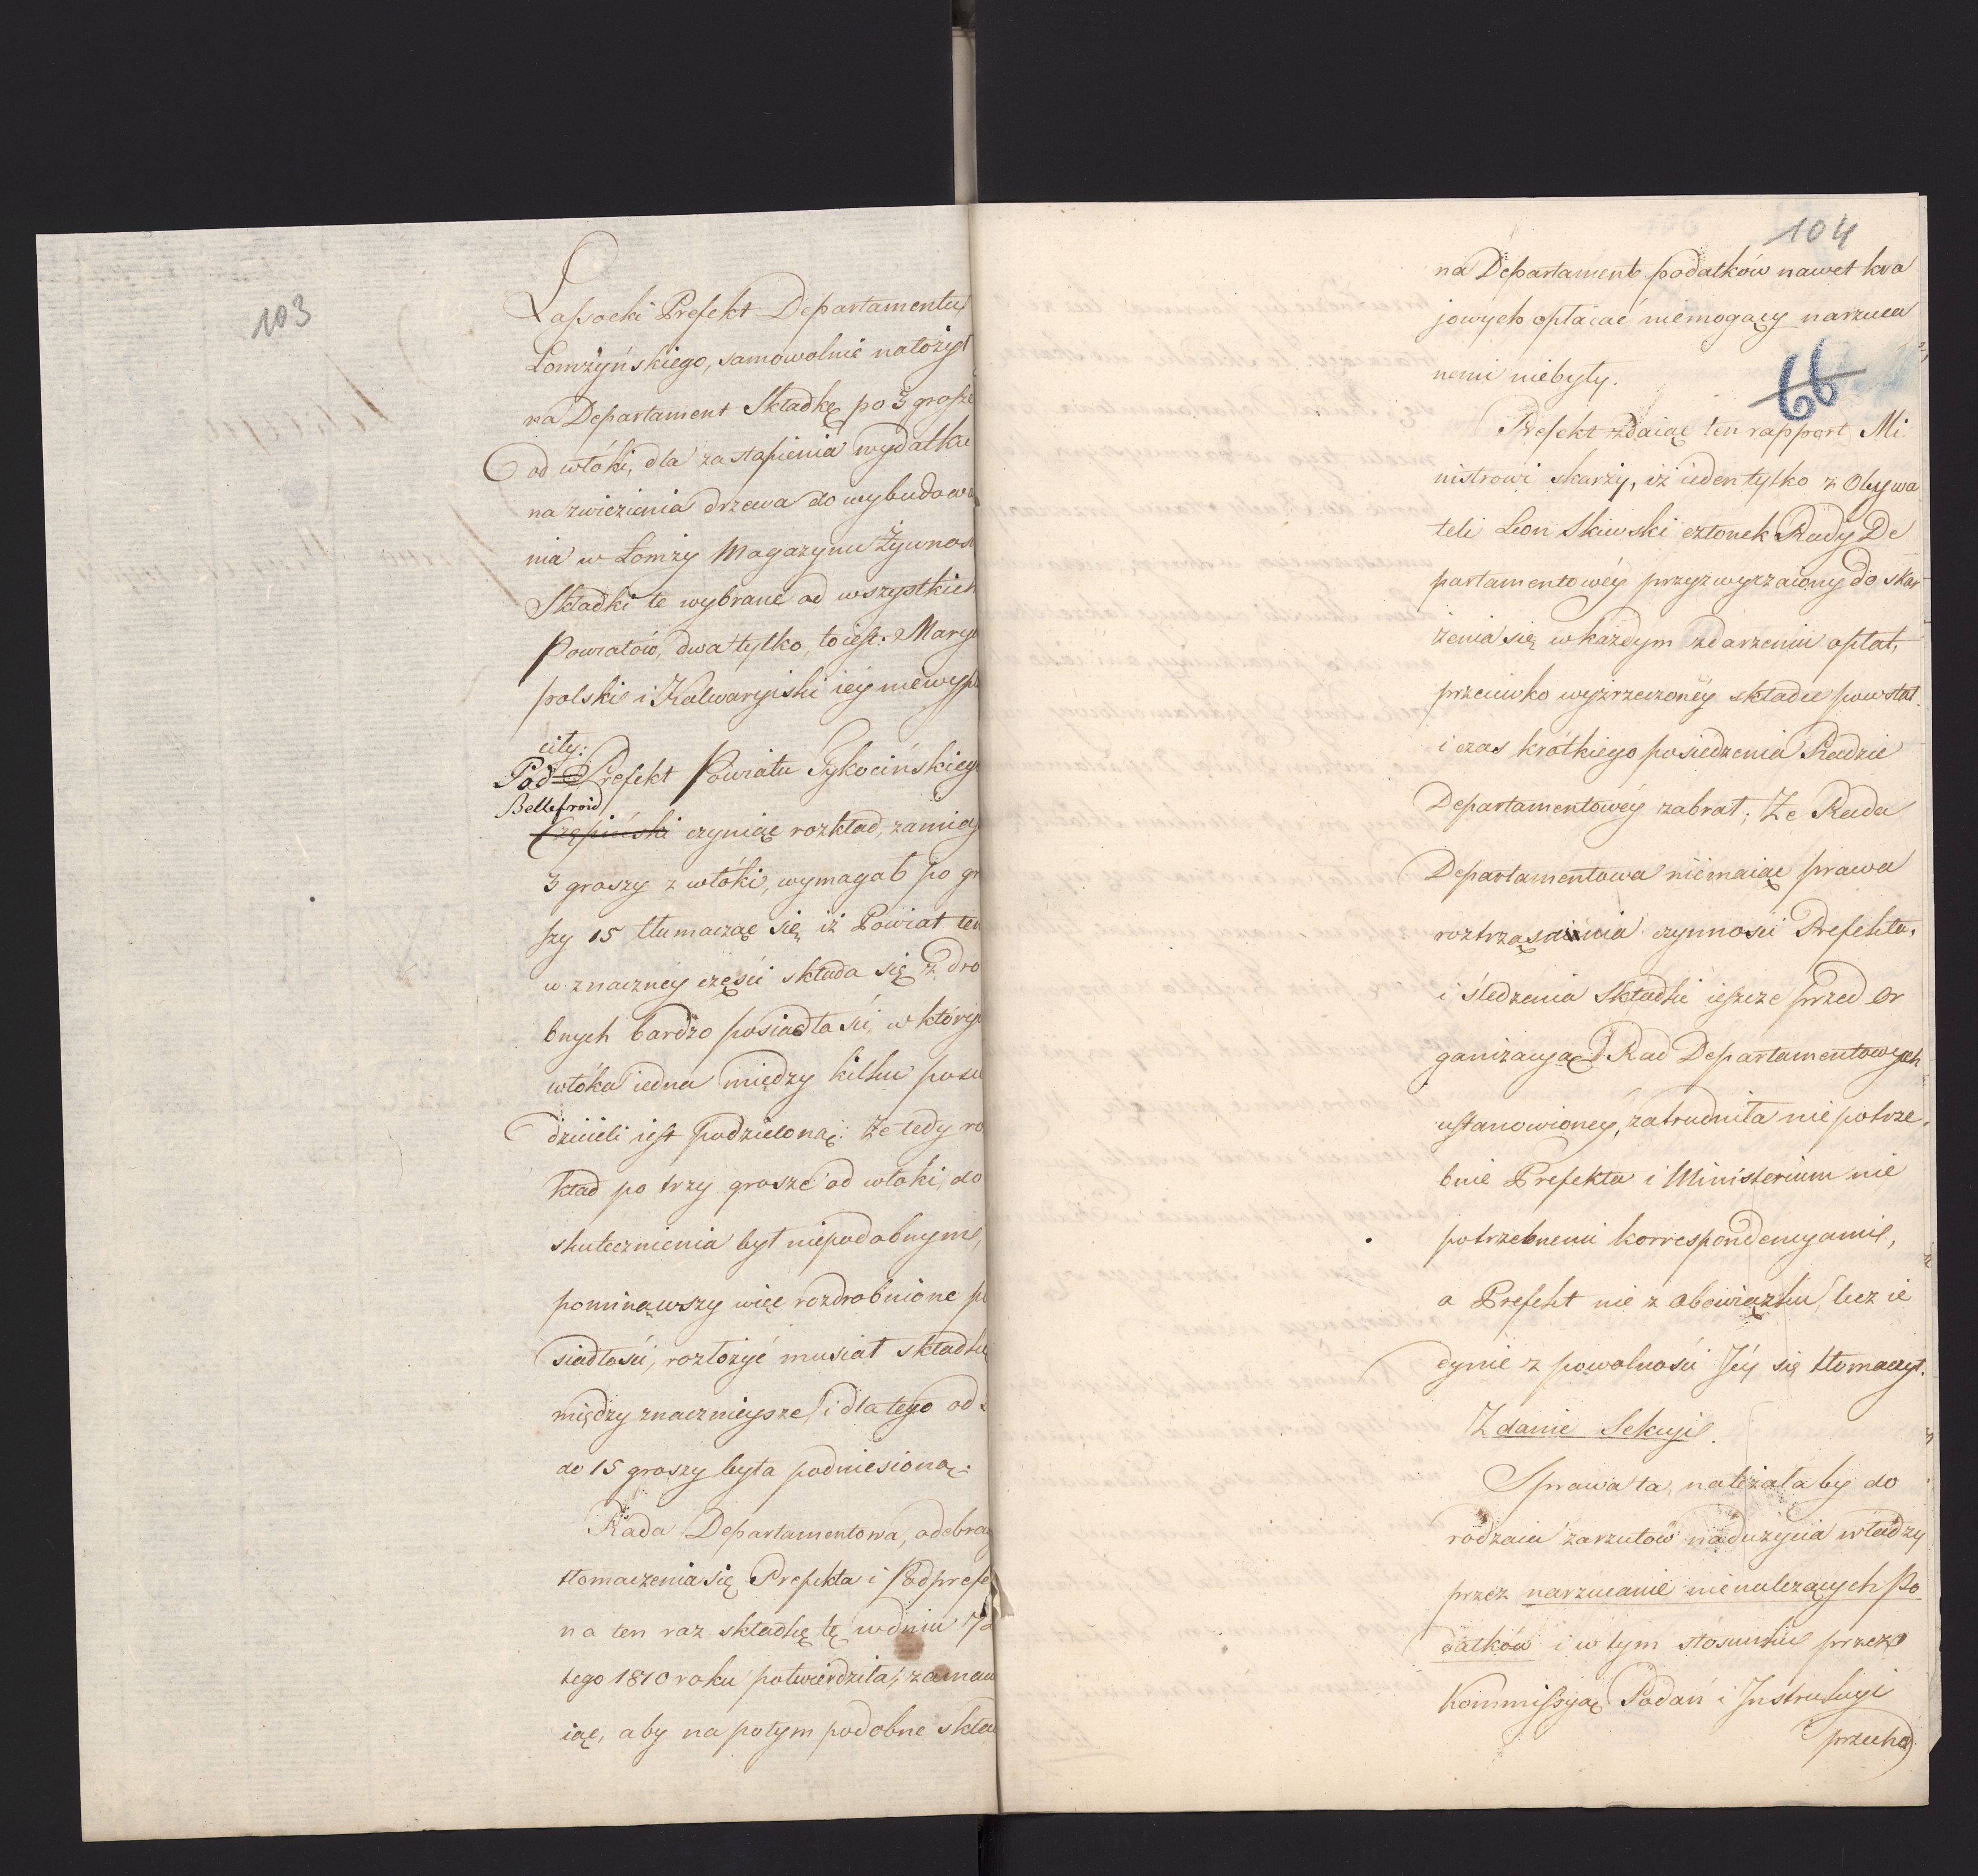 103
Lapsocki Prefekt Departamentu
Łomżyńskiego, samowolnie nałożył
na Departament Składkę po 3 grosze
od włóki, dla zastąpienia wydatku
na zwiezienia drzewa do wybudowa
nia w Łomży Magazynu Żywnoś
Składki te wybrane od wszystkich
Powiatów, dwa tylko, to iest: Marya
polski i Kalwaryiski iey niewypła
ciły:
Pod-Prefekt Powiatu Tykocińskiego
Bellefroid
Czepiński czyniąc rozkład, zamias
3 groszy z włóki, wymagał po gro
szy 15 tłumacząc się iż Powiat ten
w znaczney części składa się z dro
bnych bardzo posiadłości, w których
włóka iedna między kilku posia
dzicieli iest podzieloną: że tedy ro
kład po trzy grosze od włoki, do
skutecznienia był niepodobnym,
pominąwszy więc rozdrobnione po
siadłości, rozłożyć musiał składkę
między znacznieysze, i dla tego od 3
do 15 groszy była podniesioną:
Rada Departamentowa, odebra
tłomaczenia się Prefekta i Podprefe
na ten raz składkę tę w dniu 7
tego 1810 roku potwierdziła, zamaw
iąc, aby na potym podobne skła
104
na Departament podatków nawet kra
jowych opłacać niemogący narzuca
nemi niebyły.
66
Prefekt zdaiąc ten rapport Mi
nistrowi skarży, iż ieden tylko z Obywa
teli Leon Skiwski członek Rady De
partamentowéy przyzwyczaiony do skar
żenia się w każdym zdarzeniu opłat,
przeciwko wyzrzeczonéy składce powstał
i czas krótkiego posiedzenia Radzie
Departamentowéy zabrał; Że Rada
Departamentowa niemaiąc prawa
roztrząsania czynności Prefekta,
i śledzenia Składki ieszcze przed Or
ganizacyą Rad Departamentowych
ustanowioney, zatrudniła niepotrze
bnie Prefekta i Ministerium nie
potrzebnemi korrespondencyami,
a Prefekt nie z obowiązku, lecz ie
dynie z powolności Jéy się tłomaczył.
Zdanie Sekcyi.
Sprawa ta, należała by do
rodzaiu zarzutow nadużycia władzy
przez narzucanie nienależących Po
datków i w tym stósunku przez
Kommissyą Podań i Instrukcyi
przecho